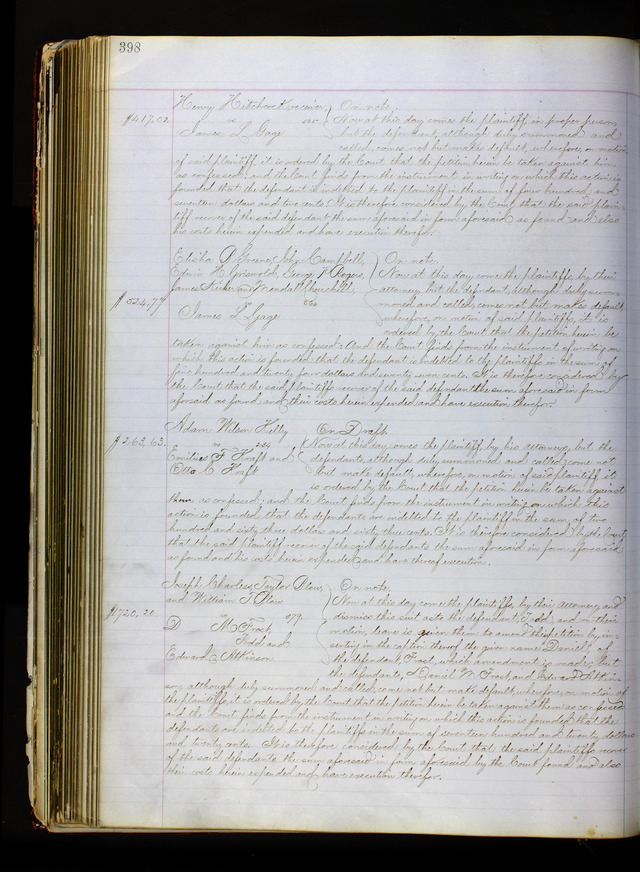 398
Henry Hitchcock receiver } On note.
$417.02 vs Now at this day comes the plaintiff in proper person
James L Gage but the defendant, although duly summoned and
called, comes not but makes default, wherefore, on motion
of said plaintiff it is ordered by the Court that the petition herein be taken against him
as confessed; and the Court finds from the instrument in writing on which this action is
founded that the defendant is indebted to the plaintiff in the sum of four hundred and
seventeen dollars and two cents. It is therefore considered by the Court that the said plain-
tiff recover of the said defendant the sum aforesaid in form aforesaid as found and also
his costs herein expended and have execution therefor.
Elisha A Greene, John Campbell, } On note.
Edwin H. Griswold, George P Rogers, Now at this day come the plaintiffs, by their
James and Wendall Churchill, attorney, but the defendant, although duly sum-
$524.77 vs moned and called, comes not but makes default,
James L Gage wherefore, on motion of said plaintiffs, it is
ordered by the Court that the petition herein be
taken against him as confessed. And the Court finds from the instrument of writing on
which this action is founded that the defendant is indebted to the plaintiffs in the sum of
five hundred and twenty four dollars and seventy seven cents. It is therefore considered by
the Court that the said plaintiffs recover of the said defendant the sum aforesaid in form
aforesaid as found and their costs herein expended and have execution therefor.
Adam Wilson Kelly } On Draft
$263.63. vs 224 Now at this day comes the plaintiff by his attorney, but the
Emilius F Hoaft and defendants, although duly summoned and called, come not
Otto C Hoaft but make default, wherefore, on motion of said plaintiff it
is ordered by the Court that the petition herein be taken against
them as confessed; and the Court finds from the instrument in writing on which this
action is founded, that the defendants are indebted to the plaintiff in the sum of two
hundred and sixty three dollars and sixty three cents. It is therefore considered by the Court
that the said plaintiff recover of the said defendants the sum aforesaid in form aforesaid
as found and his costs herein expended and have thereof execution.
Joseph Charless, Taylor Blow } On note.
and William T Blow Now at this day come the plaintiffs, by their attorney, and
$1720.20 vs 979. dismiss this suit as to the defendant, Todd, and on their
D M Frost, motion, leave is given them to amend their petition by in-
Todd and serting in the caption thereof the given name "Daniel" of
Edward Atkinson the defendant, Frost, which amendment is made; but
the defendants, Daniel M Frost, and Edward Atkin-
son, although duly summoned and called, come not but make default, wherefore, on motion of
the plaintiffs, it is ordered by the Court that the petition herein be taken against them as confessed
and the Court finds from the instrument in writing on which this action is founded that the
defendants are indebted to the plaintiffs in the sum of seventeen hundred and twenty dollars
and twenty cents. It is therefore considered by the Court that the said plaintiffs recover
of the said defendants the sum aforesaid in form aforesaid by the Court found and also
their costs herein expended and have execution therefor.